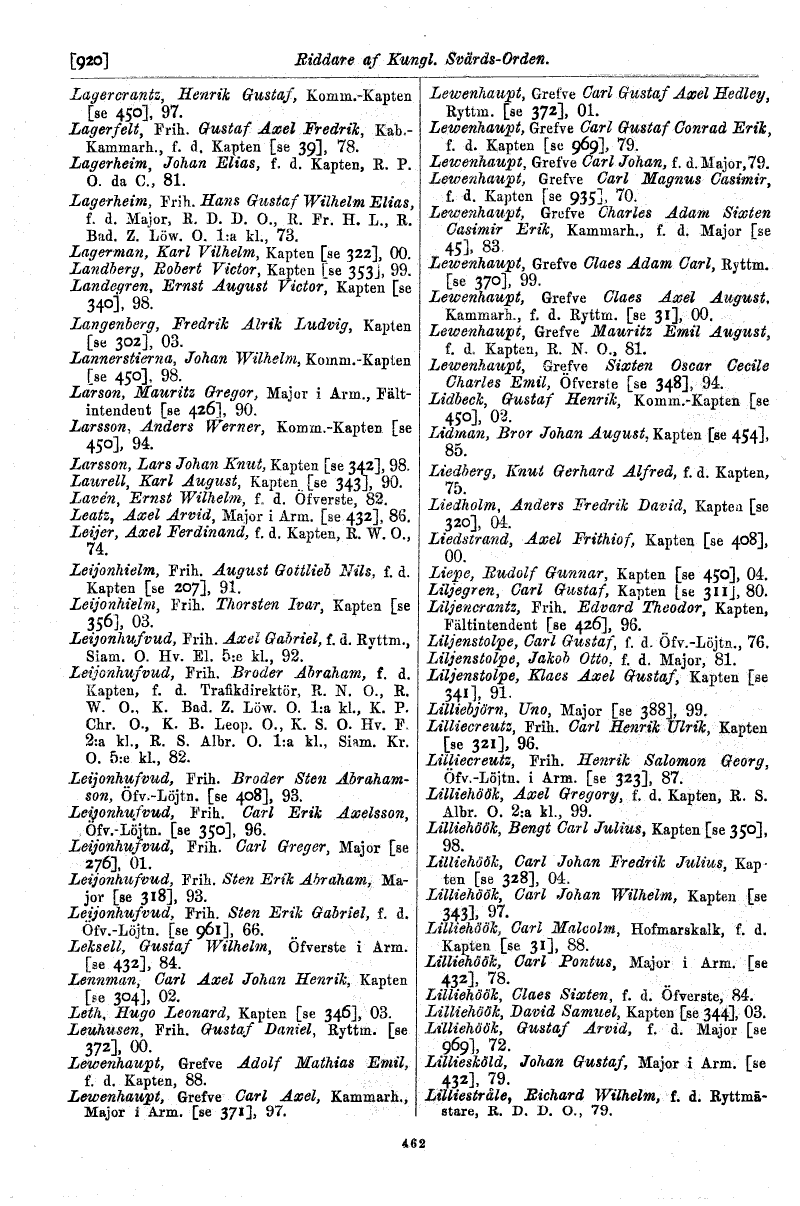 [920] Riddare af Kungl. Svärds-Orden.
Lagercrantz, Henrik Gustaf, Komm.-Kapten
[se 450], 97.
Lagerfelt, Frih. Gustaf Axel Fredrik, Kab.-
Kammarh., f. d. Kapten [se 39], 78.
Lagerheim, Johan Elias, f. d. Kapten, R. P.
O. da C., 81.
Lagerheim, Frih. Hans Gustaf Wilhelm Elias,
f. d. Major, R. D. D. O., R. Fr. H. L., R.
Bad. Z. Löw. O. 1:a kl., 73.
Lagerman, Karl Vilhelm, Kapten [se 322], 00.
Landberg, Robert Victor, Kapten [se 353], 99.
Landegren, Ernst August Victor, Kapten [se
340], 98.
Langenberg, Fredrik Alrik Ludvig, Kapten
[se 302], 03.
Lannerstierna, Johan Wilhelm, Komm.-Kapten
[se 450], 98.
Larson, Mauritz Gregor, Major i Arm., Fält-
intendent [se 426], 90.
Larsson, Anders Werner, Komm.-Kapten [se
450], 94.
Larsson, Lars Johan Knut, Kapten [se 342], 98.
Laurell, Karl August, Kapten [se 343], 90.
Lavén, Ernst Wilhelm, f. d. Öfverste, 82.
Leatz, Axel Arvid, Major i Arm. [se 432], 86.
Leijer, Axel Ferdinand, f. d. Kapten, R. W. O.,
74.
Leijonhielm, Frih. August Gottlieb Nils, f. d.
Kapten [se 207], 91.
Leijonhielm, Frih. Thorsten Ivar, Kapten [se
356], 03.
Leijonhufvud, Frih. Axel Gabriel, f. d. Ryttm.,
Siam. O. Hv. El. 5:e kl., 92.
Leijonhufvud, Frih. Broder Abraham, f. d.
Kapten, f. d. Trafikdirektör, R. N. O., R.
W. O., K. Bad. Z. Löw. O. 1:a kl., K. P.
Chr. O., K. B. Leop. O., K. S. O. Hv. F.
2:a kl., R. S. Albr. O. 1:a kl., Siam. Kr.
O. 5:e kl., 82.
Leijonhufvud, Frih. Broder Sten Abraham-
son, Öfv.-Löjtn. [se 408], 93.
Leijonhufvud, Frih. Carl Erik Axelsson,
Öfv.-Löjtn. [se 350], 96.
Leijonhufvud, Frih. Carl Greger, Major [se
276], 01.
Leijonhufvud, Frih. Sten Erik Abraham, Ma-
jor [se 318], 93.
Leijonhufvud, Frih. Sten Erik Gabriel, f. d.
Öfv.-Löjtn. [se 961], 66.
Leksell, Gustaf Wilhelm, Öfverste i Arm.
[se 432], 84.
Lennman, Carl Axel Johan Henrik, Kapten
[se 304], 02.
Leth, Hugo Leonard, Kapten [se 346], 03.
Leuhusen, Frih. Gustaf Daniel, Ryttm. [se
372], 00.
Lewenhaupt, Grefve Adolf Mathias Emil,
f. d. Kapten, 88.
Lewenhaupt, Grefve Carl Axel, Kammarh.,
Major i Arm. [se 371], 97.
Lewenhaupt, Grefve Carl Gustaf Axel Hedley,
Ryttm. [se 372], 01.
Lewenhaupt, Grefve Carl Gustaf Conrad Erik,
f. d. Kapten [se 969], 79.
Lewenhaupt, Grefve Carl Johan, f. d. Major, 79.
Lewenhaupt, Grefve Carl Magnus Casimir,
f. d. Kapten [se 935], 70.
Lewenhaupt, Grefve Charles Adam Sixten
Casimir Erik, Kammarh., f. d. Major [se
45], 83
Lewenhaupt, Grefve Claes Adam Carl, Ryttm.
[se 370], 99.
Lewenhaupt, Grefve Claes Axel August,
Kammarh., f. d. Ryttm. [se 31], 00.
Lewenhaupt, Grefve Mauritz Emil August,
f. d. Kapten, R. N. O., 81.
Lewenhaupt, Grefve Sixten Oscar Cecile
Charles Emil, Öfverste [se 348], 94.
Lidbeck, Gustaf Henrik, Komm.-Kapten [se
450], 02.
Lidman, Bror Johan August, Kapten [se 454],
85.
Liedberg, Knut Gerhard Alfred, f. d. Kapten,
75.
Liedholm, Anders Fredrik David, Kapten [se
320], 04.
Liedstrand, Axel Frithiof, Kapten [se 408],
00.
Liepe, Rudolf Gunnar, Kapten [se 450], 04.
Liljegren, Carl Gustaf, Kapten [se 311], 80.
Liljencrantz, Frih. Edvard Theodor, Kapten,
Fältintendent [se 426], 96.
Liljenstolpe, Carl Gustaf, f. d. Öfv.-Löjtn., 76.
Liljenstolpe, Jakob Otto, f. d. Major, 81.
Liljenstolpe, Klaes Axel Gustaf, Kapten [se
341], 91.
Lilliebjörn, Uno, Major [se 388], 99.
Lilliecreutz, Frih. Carl Henrik Ulrik, Kapten
[se 321], 96.
Lilliecreutz, Frih. Henrik Salomon Georg,
Öfv.-Löjtn. i Arm. [se 323], 87.
Lilliehöök, Axel Gregory, f. d. Kapten, R. S.
Albr. O. 2:a kl., 99.
Lilliehöök, Bengt Carl Julius, Kapten [se 350],
98.
Lilliehöök, Carl Johan Fredrik Julius, Kap-
ten [se 328], 04.
Lilliehöök, Carl Johan Wilhelm, Kapten [se
343], 97.
Lilliehöök, Carl Malcolm, Hofmarskalk, f. d.
Kapten [se 31], 88.
Lilliehöök, Carl Pontus, Major i Arm. [se
432], 78.
Lilliehöök, Claes Sixten, f. d. Öfverste, 84.
Lilliehöök, David Samuel, Kapten [se 344], 03.
Lilliehöök, Gustaf Arvid, f. d. Major [se
969], 72.
Lilliesköld, Johan Gustaf, Major i Arm. [se
432], 79.
Lilliestråle, Richard Wilhelm, f. d. Ryttmä-
stare, R. D. D. O., 79.
462